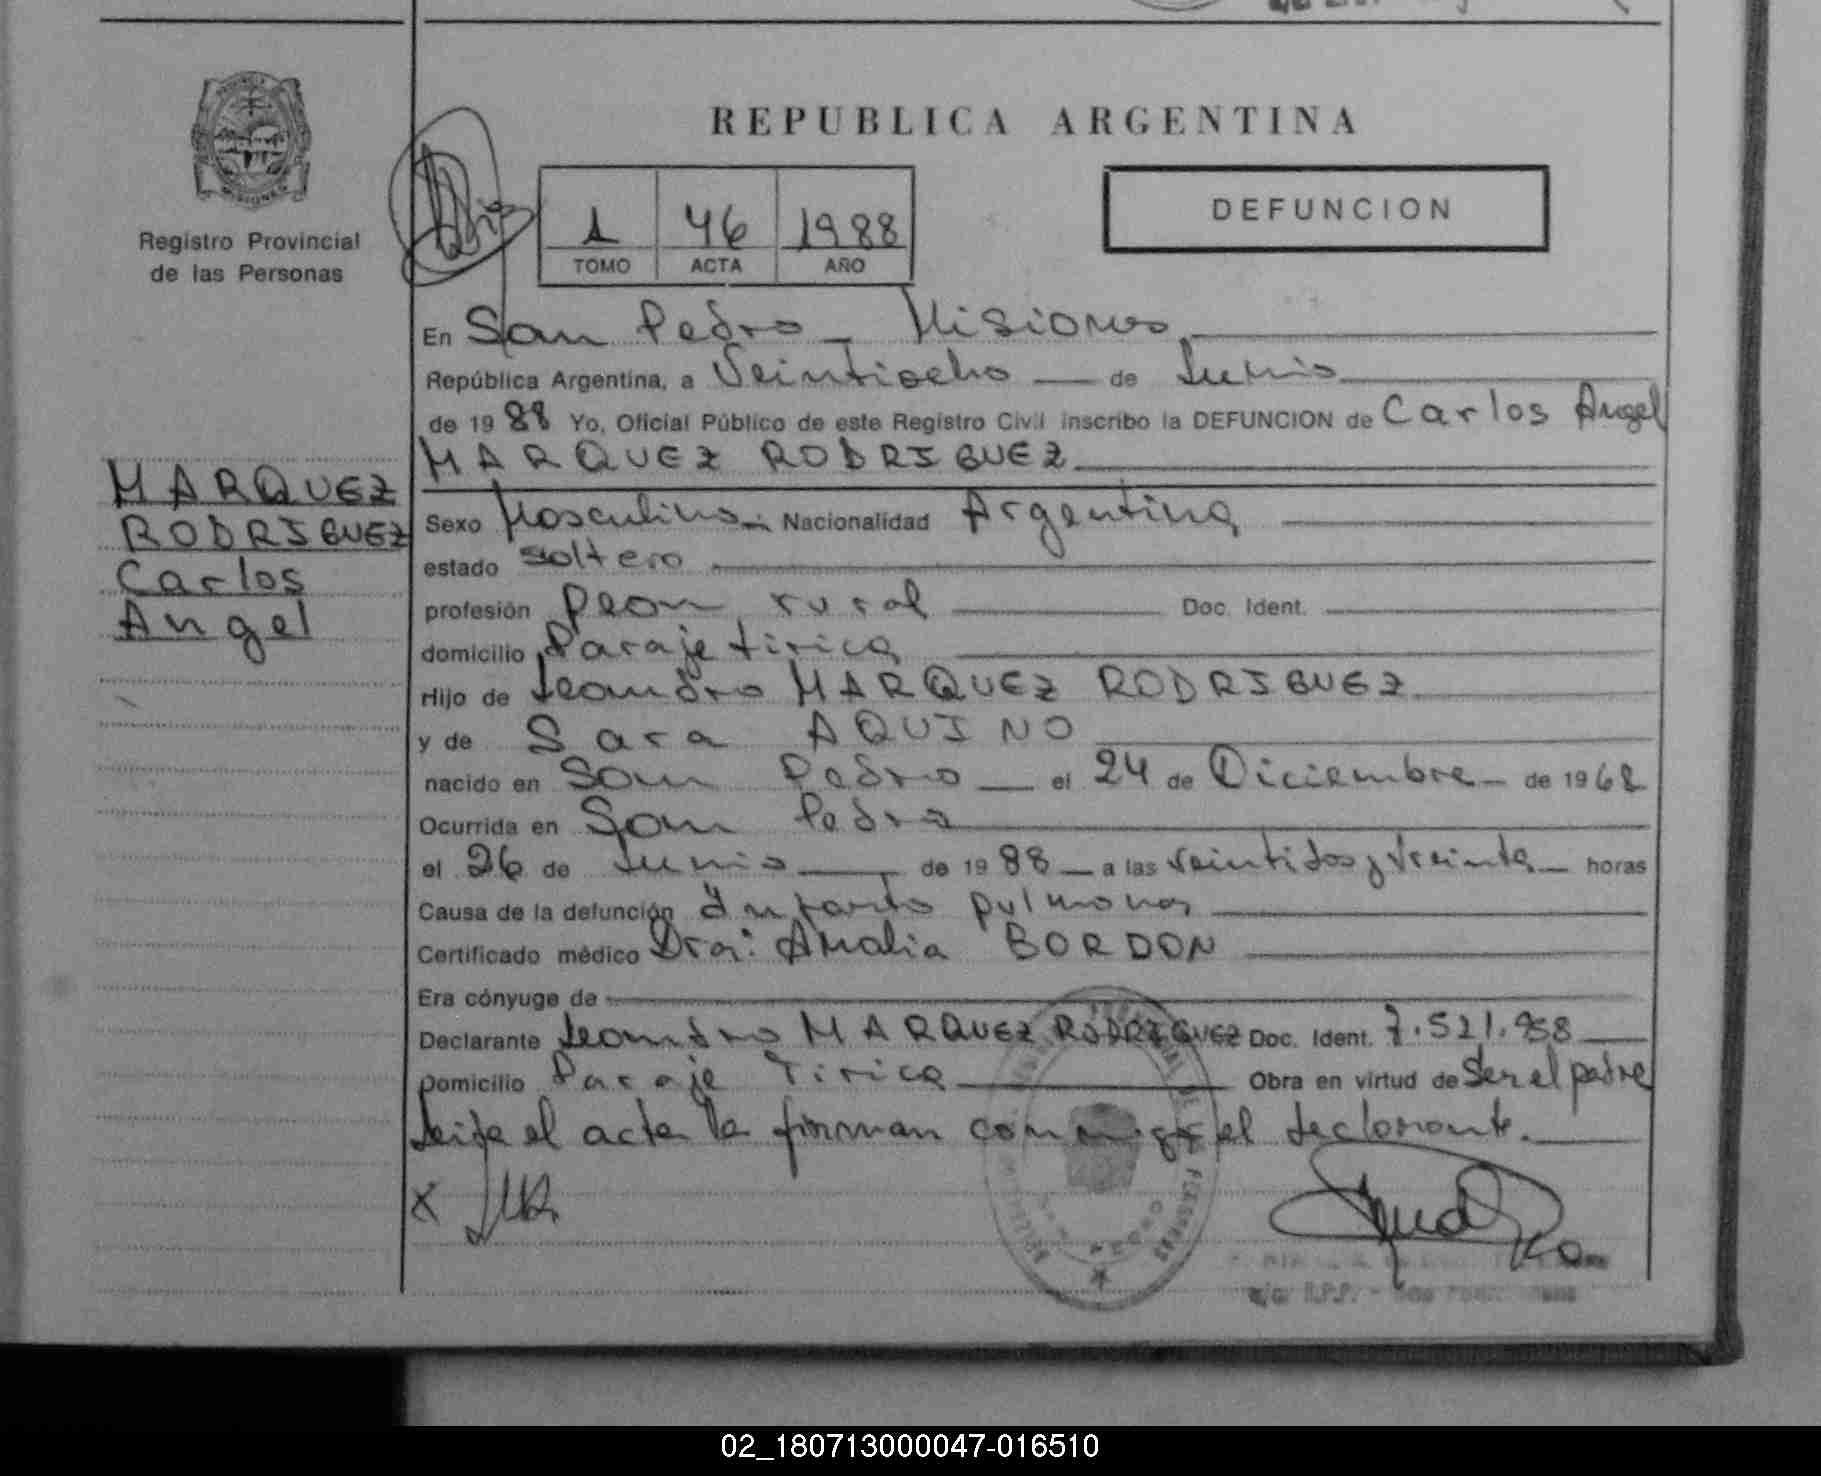 REPUBLICA ARGENTINA
PROVINCIA
MISIONES
Registro Provincial
de las Personas
1 46 1988
TOMO ACTA AÑO
DEFUNCION
En San Pedro - Misiones
República Argentina, a Veintiocho de Junio
de 1988 Yo, Oficial Público de este Registro Civil inscribo la DEFUNCION de Carlos Angel
MARQUEZ RODRIGUEZ
MARQUEZ
RODRIGUEZ
Carlos
Angel
Sexo Masculino.- Nacionalidad Argentina
estado soltero
profesión Peon rural Doc. Ident.
domicilio Paraje tirica
Hijo de Leandro MARQUEZ RODRIGUEZ
y de Sara AQUINO
nacido en San Pedro el 24 de Diciembre de 1968
Ocurrida en San Pedro
el 26 de Junio de 1988 a las veintidos y treinta horas
Causa de la defunción Infarto pulmonar
Certificado médico Dra: Amalia BORDON
Era cónyuge de
Declarante Leandro MARQUEZ RODRIGUEZ Doc. Ident. 7.521.958
Domicilio Paraje Tirica Obra en virtud de Ser el padre
Leida el acta la firman conmigo el declarante.
X
02_180713000047-016510